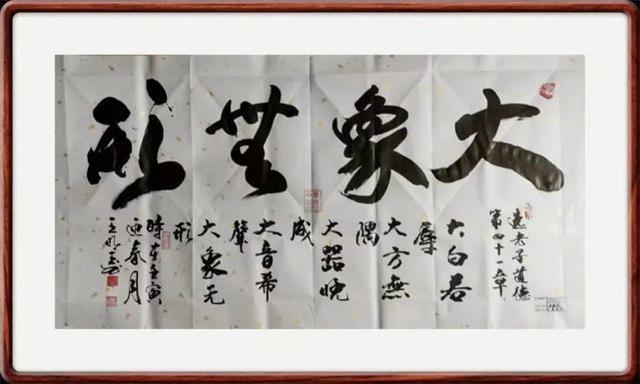 大象無形
老子道德
第四十一章
大白若
辱
大方無
隅
大器晚
成
大音希
聲
大象无
形
時在壬寅
迎春月
王